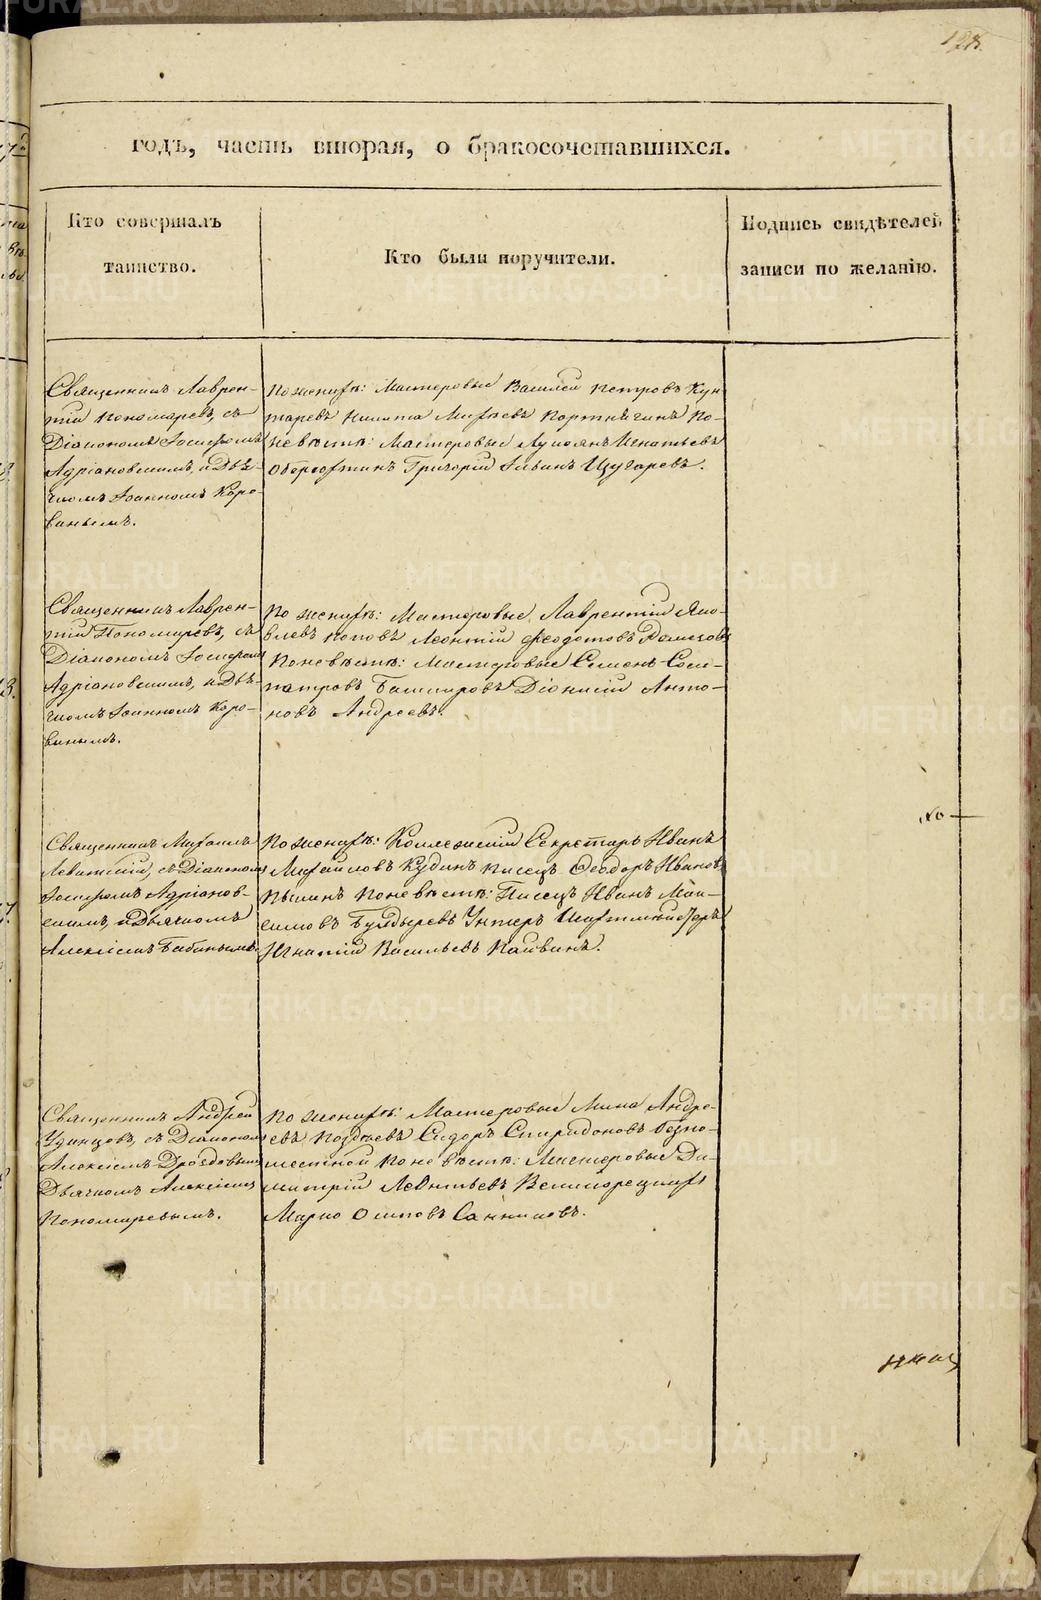 128.
годъ, часть вторая, о бракосочетавшихся.
Кто совершалъ
таинство.
Кто были поручители.
Подпись свидѣтелей
записи по желанію.
Священникъ Лаврен-
тій Пономаревъ, съ
Діакономъ Іосифомъ
Адріановскимъ, и Дья-
чкомъ Іоанномъ Коро-
винымъ.
По женихѣ: Мастеровые Василей Петровъ
Никита
невѣстѣ: Мастеровые Лукоянъ Игнатьевъ
Григорій Цугаревъ.
Священникъ Лаврен-
тій Пономаревъ, съ
Діакономъ Іосифомъ
Адріановскимъ, и Дья-
чкомъ Іоанномъ Коро-
винымъ.
По женихѣ: Мастеровые, Лаврентій Яко-
влевъ Поповъ Леонтій Федотовъ
По невѣстѣ: Мастеровые Семенъ Соси-
патровъ Башкировъ Діонисій Анто-
новъ Андреевъ.
Священникъ Михаилъ
Левитскій, съ Діакономъ
Іосифомъ Адріанов-
скимъ, и Дьячкомъ
Алексіемъ Бабинымъ.
По женихѣ: Коллежскій Секретарь Иванъ
Михайловъ Кудинъ писецъ Феодоръ Ивановъ
По невѣстѣ: Писецъ Иванъ Мак-
симовъ Булдыревъ Унтеръ Шихтмейстеръ
Игнатій Васильевъ
Священникъ Андрей
Удинцовъ, съ Діакономъ
Алексіемъ Дроздовымъ
Дьячкомъ Алексіемъ
Пономаревымъ.
По женихѣ: Мастеровые Мина Андре-
евъ Сидоръ Спиридоновъ
По невѣстѣ: Мастеровые Ди-
митрій Леонтьевъ Великорецкихъ
Марко Осиповъ Санниковъ.
METRIKI.GASO-URAL.RU